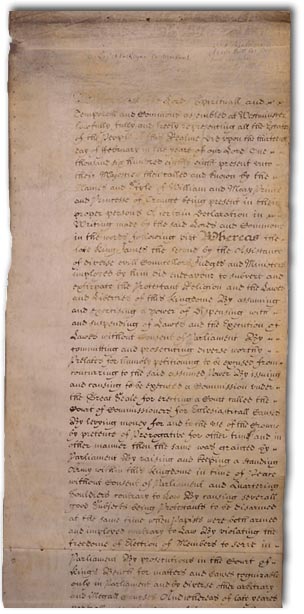 Lords Spirituall and
Temporall and Commons assembled at Westminster
Lawfully fully and freely representing all the Estates
of the People of this Realme did upon the thirteenth
day of February in the yeare of our Lord One
thousand six hundred eighty eight present unto
their Majesties then called and known by the
Names and Style of William and Mary Prince
and Princesse of Orange being present in their
proper persons a certain Declaration in
Writing made by the said Lords and Commons
in the words following viz Whereas the
late King James the second by the Assistance
of diverse evill Councellors Judges and Ministers
imployed by him did endeavour to subvert and
extirpate the Protestant Religion and the Lawes
and Liberties of this Kingdome By assuming
and exercising a power of Dispensing with
and suspending of Lawes and the Execution of
Lawes without Consent of Parliament By
committing and prosecuting diverse worthy
Prelates for humbly petitioning to be excused from
concurring to the said assumed power By issuing
and causing to be executed a Commission under
the Great Seale for erecting a Court called the
Court of Commissioners for Ecclesiasticall Causes
By levying money for and to the use of the Crowne
by pretence of Prerogative for other time and in
other manner then the same was granted by
Parliament By raising and keeping a standing
Army within this Kingdome in time of Peace
without Consent of Parliament and Quartering
Souldiers contrary to Law By causing severall
good Subjects being Protestants to be disarmed
at the same time when Papists were both armed
and imployed contrary to Law By violating the
freedome of Election of Members to serve in
Parliament By prosecutions in the Court of
Kings Bench for matters and causes cognizable
only in Parliament and by diverse other arbitrary
and illegall Courses And whereas of late yeares